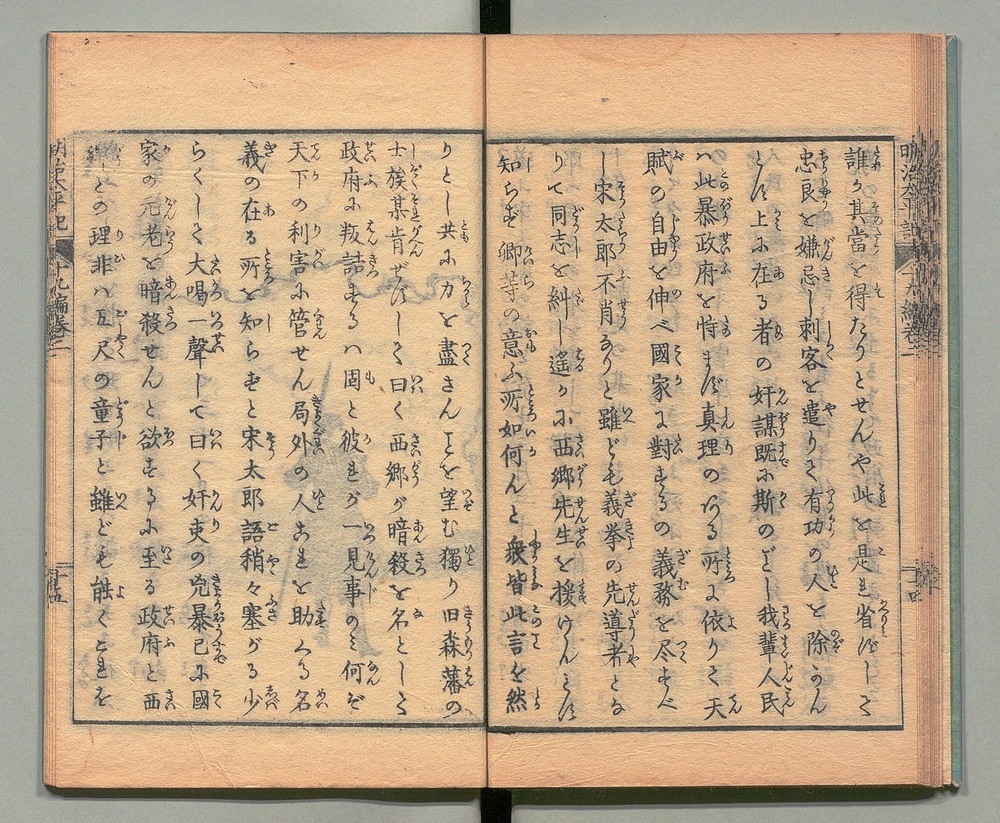 明治太平記
十九編巻二
十四
誰か其當を得たりとせんや此を是れ省ずして
忠良を嫌忌し刺客を遣りて有功の人を除かん
とす上に在る者の奸謀既に斯のごとし我輩人民
ハ此暴政府を恃まず真理の有る所に依りて天
賦の自由を伸べ國家に對するの義務を尽すべ
し宋太郎不肖なりと雖ども義挙の先導者とな
りて同志を糾し遙かに西郷先生を援けんとす
知らず卿等の意ふ所如何んと衆皆此言を然
りとし共に力を盡さんことを望む獨り旧森藩の
士族某肯ぜずして曰く西郷が暗殺を名として
政府に叛詰するハ固と彼れが一見事のミ何ぞ
天下の利害に管せん局外の人これを助くる名
義の在る所を知らずと宋太郎語稍々塞がる少
らくして大喝一聲して曰く奸吏の兇暴已に國
家の元老を暗殺せんと欲するに至る政府と西
郷との理非ハ五尺の童子と雖ども能くこれを
明治太平記
十九編巻二
十五